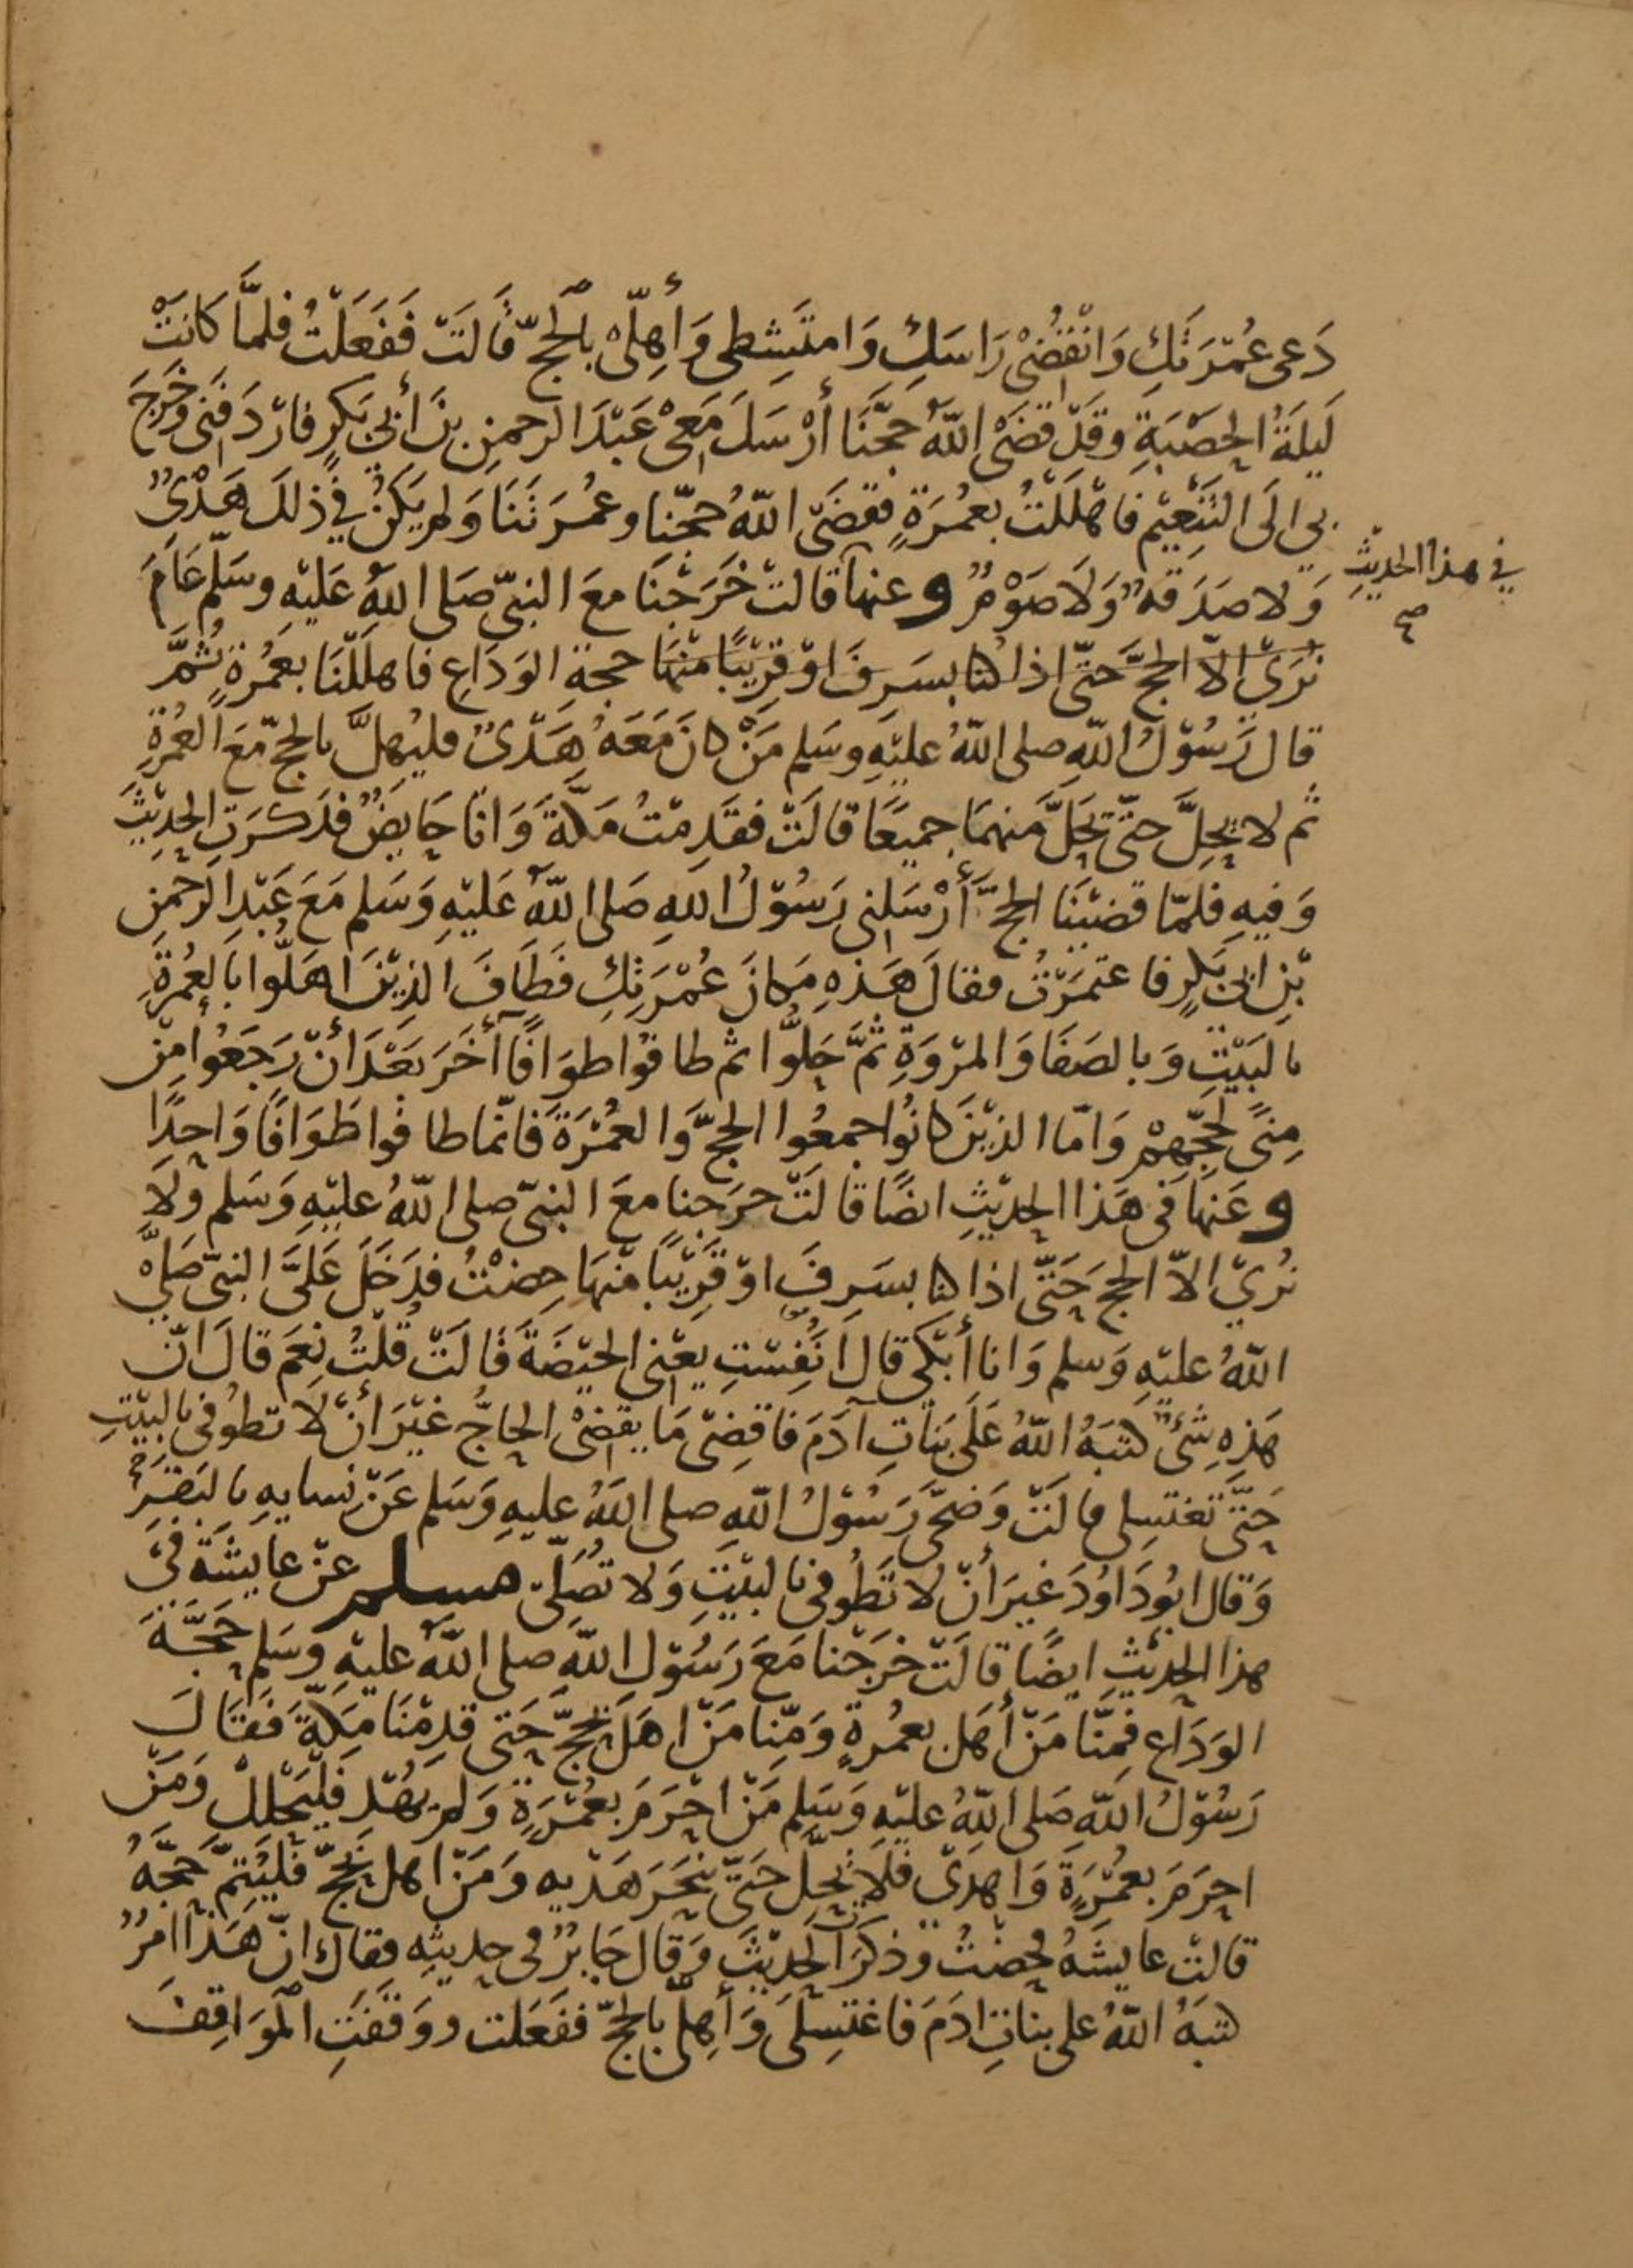 دَعى عُمْرَتَكِ وَانْقُضِىْ رَاسَكِ وَامتَشِطى وَأَهِلّىْ بالْحَجّ قَالَتْ فَفَعَلْتُ فلمَّا كَانَتْ
لَيلَةُ الحصْبَةِ وقَدْ قضَى اللّهُ حَجَّنَا أَرْسَلَ مَعِىْ عَبْدَ الرحمنِ بنَ أَبىْ بَكرٍ فارْدَفَنى وخَرَجَ
بي الَى التنعِيْمِ فَاهْلَلْتُ بعُمْرَةٍ فقضَى اللّهُ حجّنا وعُمرَتَنَا وَلم يَكنْ في ذلكَ هَدْىٌ
وَلا صَدَقةٌ وَلَا صَوْمٌ وعنها قالتْ خَرَجْنَا معَ النبىّ صَلى اللّهُ عَليْهِ وسَلّم عَامَ
في هذا الحديْثِ صح
نُرَىْ الاّ الحجَّ حَتّى اذا كنا بسَرِفَ اوْ قرِيْبًا منْهَا حجةِ الوَدَاعِ فاهلَلْنَا بعُمْرةٍ ثُمَّ
قال رَسُوْلُ اللّهِ صلى اللّهُ عليْهِ وسَلم مَنْ كانَ مَعَهُ هَدْىٌ فليُهِلَّ بالحجّ مَعَ العُمْرَةِ
ثم لا يحِلَّ حتّى يَحِلَّ منهمَا جميعًا قالَتْ فقَدِمْتُ مَكّةَ وَانَا حَايضٌ فذَكَرَتِ الحدِيْثَ
وَفيهِ فلمّا قضيْنَا الحجَّ أَرْسَلنى رَسُوْلُ اللهِ صَلى اللّهُ عَليْهِ وَسَلم مَعَ عَبْدِ الرحْمنِ
بْنِ ابىْ بَكرٍ فاعتمَرْتُ فقالَ هَذهِ مَكانَ عُمْرَتِكِ فَطَافَ الذِيْنَ اهَلُّوا بالعُمْرَةِ
بالبَيْتِ وَبالصَفَا وَالمرْوَةِ ثمَّ حَلُّوا ثم طافوا طوَافًا آخَرَ بَعْدَ أَنْ رَجَعُوا مِنْ
مِنىً لحَجّهِمْ وَامّا الذيْنَ كانُوا جمعُوا الحجَّ وَالعُمْرَةَ فَانّما طافُوا طَوَافًا وَاحِدًا
وعَنهَا فى هَذا الحديْثِ ايضًا قالَتْ خرَجنا معَ النبىّ صلى اللّهُ عليْهِ وَسَلم ولَا
نُرىْ الاّ الحجَ حَتّى اذا كنا بسَرِفَ اوْ قَرِيْبًا منْهَا حِضْتُ فدَخَلَ عَلىَّ النبىّ صَلىّ
اللّهُ عليْهِ وَسلم وَانا أَبْكى قال أَنَفِسْتِ يعْنى الحيْضَةَ قَالَتْ قُلْتُ نعَمْ قالَ انّ
هَذهِ شَئٌ كتبَهُ اللّهُ عَلَى بَنَاتِ آدَمَ فاقضِىْ مَا يقضىْ الحاجُّ غَيْرَ أَنْ لَا تطوُفى بالبيْتِ
حَتّى تغتسِلى قالَتْ وَضحّى رَسُوْلُ اللّهِ صلى اللّهُ عليهِ وَسَلم عَنْ نِسايهِ بالبَقَرِ
وَقال ابُو دَاوُدَ غيرَ أَنْ لا تَطُوفى بالبيْتِ وَلا تُصَلّى مسلم عنْ عايشَةَ فىْ
هذا الحديْثِ ايضًا قالَتْ خرَجْنا مَعَ رَسُوْل اللّهِ صلى اللّهُ عليْهِ وسَلم حَجَّةَ
الوَدَاعِ فمِنَّا مَنْ أَهَل بعُمْرةٍ وَمِنّا مَنْ اهَلَّ بحجّ حَتى قدِمْنَا مَكّةَ فَقَالَ
رَسُوْلُ اللّهِ صَلى اللّهُ عليْهِ وَسَلم مَنْ احْرَمَ بعُمْرَةٍ وَلم يُهْدِ فليَحْلِلْ وَمَنْ
احرَمَ بعُمْرَةٍ وَاهدَى فلَا يحِلّ حَتّى ينحَرَ هَدْيه وَمَنْ اهل بحَجّ فليُتِمَّ حَجَّهُ
قالتْ عايشَهُ فحِضْتُ وذكَرَ الحَدِيْثَ وَقال جَابرٌ فى حديثِه فقال انّ هَذا امرٌ
كتبَهُ اللّهُ على بناتِ ادَمَ فَاغتسِلىْ وَأَهِلّى بالحَجّ ففَعَلت ووَقَفَتِ المَوَاقِفَ